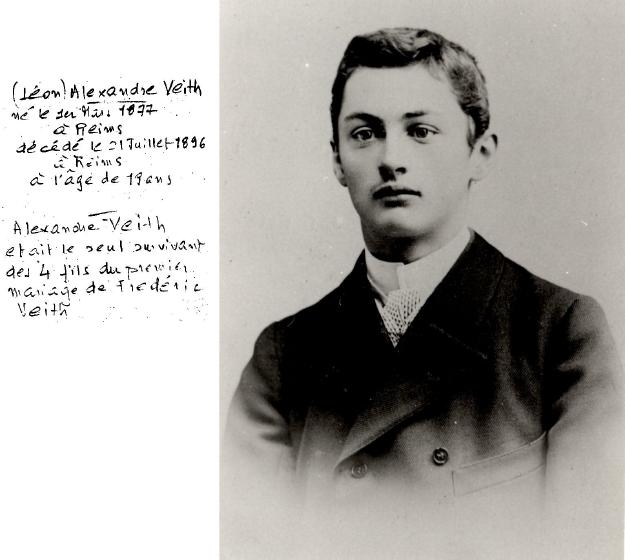 (Léon) Alexandre Veith
né le 1er Mars 1877
à Reims
décédé le 21 Juillet 1896
à Reims
à l'âge de 19 ans
Alexandre Veith
etait le seul survivant
des 4 fils du premier
mariage de Frédéric
Veith